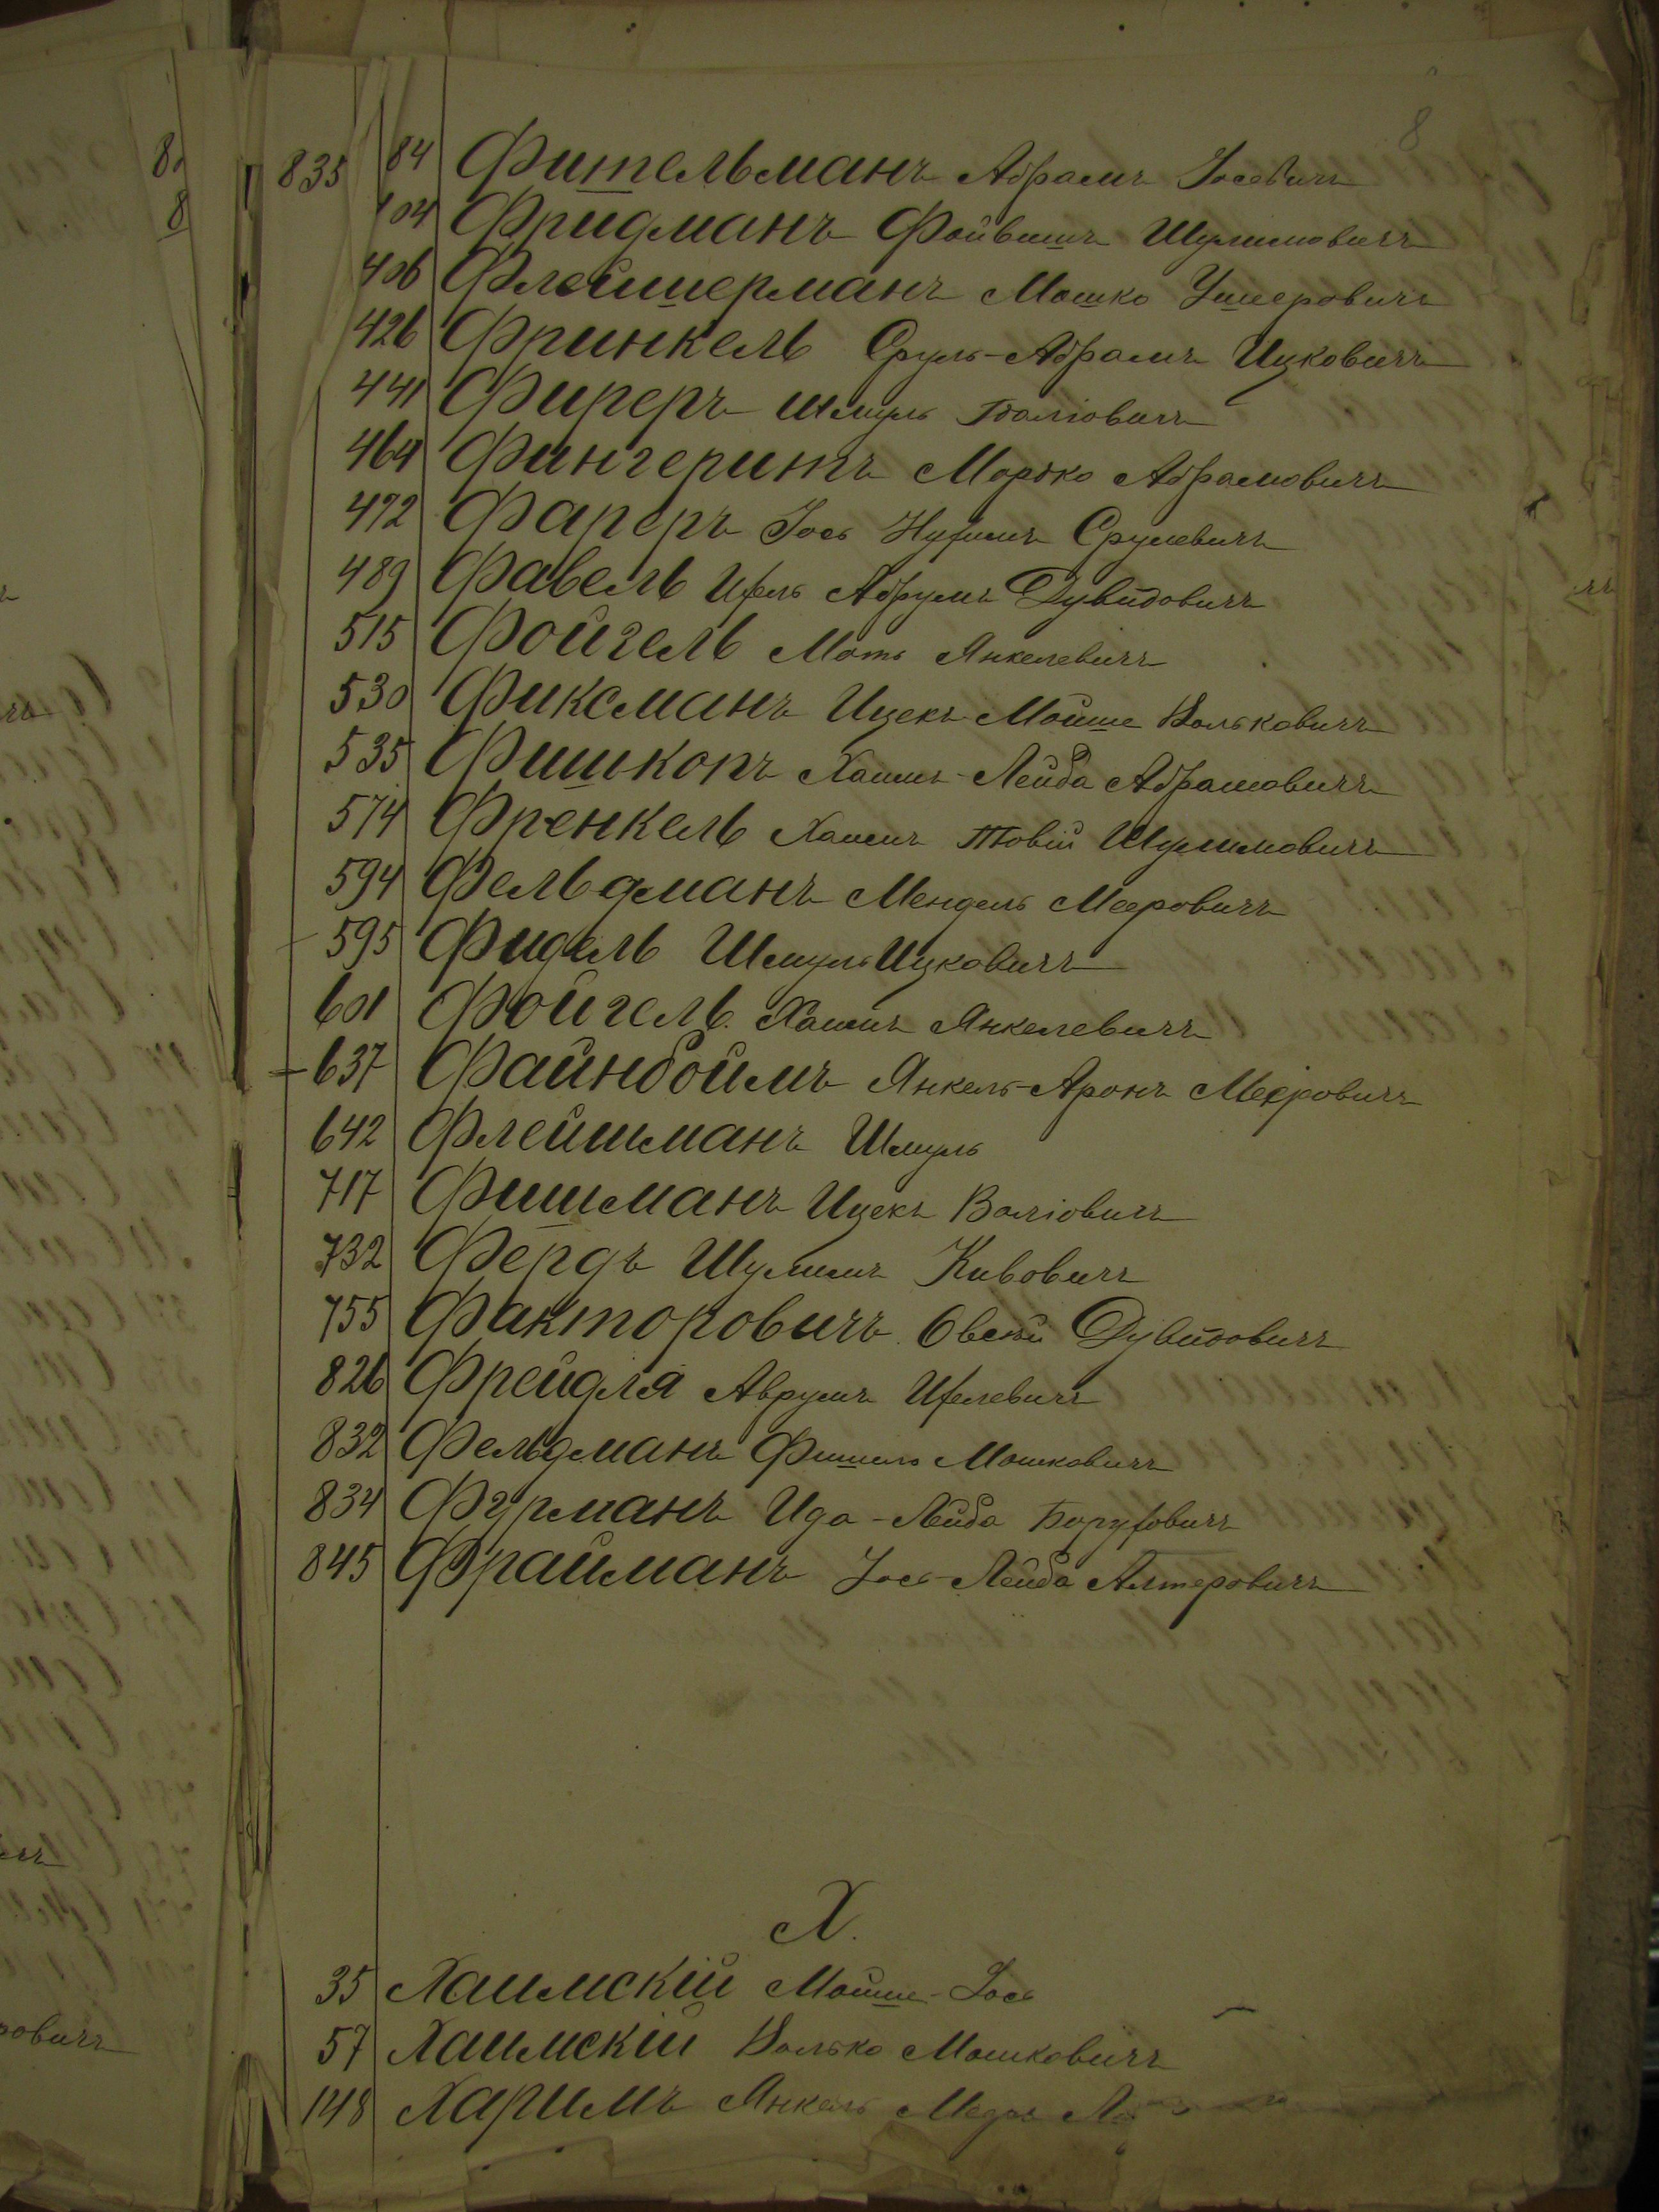 8
835 84 Фительманъ Абрамъ Іосевичъ
404 Фридманъ Фойвишъ Шулимовичъ
406 Флейшерманъ Мошко Ушеровичъ
426 Фринкель Сруль-Абрамъ Ицковичъ
441 Фиреръ Шмуль
464 Фингеритъ Мордко Абрамовичъ
472 Фареръ Іось Нухимъ Срулевичъ
489 Фавель Ихель Абрумъ Дувидовичъ
515 Фойгель Моть Янкелевичъ
530 Фиксманъ Ицекъ-Мойше Вольковичъ
535 Фишкопъ Хаимъ-Лейба Абрамовичъ
574 Френкель Хаимъ Товій Шулимовичъ
594 Фельдманъ Мендель Мееровичъ
595 Фидель Шмуль Ицковичъ
601 Фойгель Хаимъ Янкелевичъ
637 Файнбоймъ Янкель-Аронъ Мееровичъ
642 Флейшманъ Шмуль
717 Фишманъ Ицекъ Воліовичъ
732 Фердъ Шулимъ Кивовичъ
755 Факторовичъ Овсѣй Дувидовичъ
826 Фрейдля Аврумъ Ихелевичъ
832 Фельдманъ Фишель Мошковичъ
834 Фурманъ Ида-Лейба Боруховичъ
845 Фрайманъ Іось-Лейба Алтеровичъ
Х.
35 Хаимскій Мойше-Іось
57 Хаимскій Волько Мошковичъ
148 Харимъ Янкель